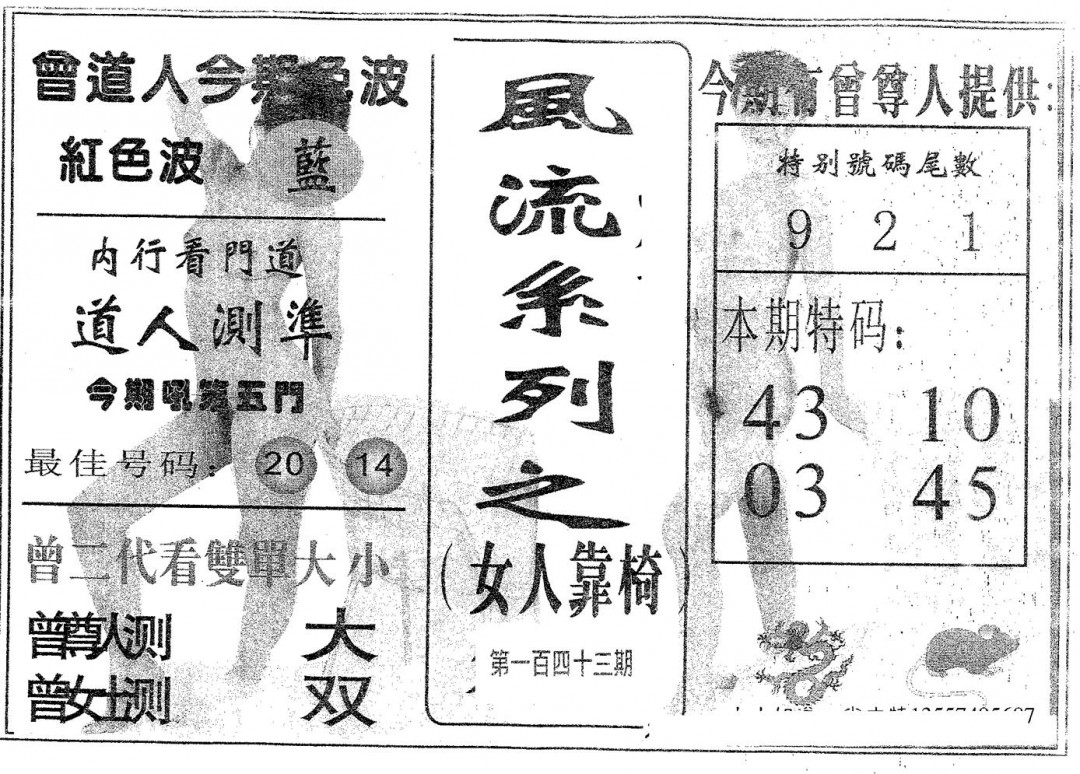 曾道人今期色波
紅色波 藍
内行看門道
道人測準
今期吼第五門
最佳号码：20 14
曾二代看雙單大小
曾尊人测 大
曾女士测 双
風流系列之
（女人靠椅）
第一百四十三期
今期有曾尊人提供:
特别號碼尾數
9 2 1
本期特码:
43 10
03 45